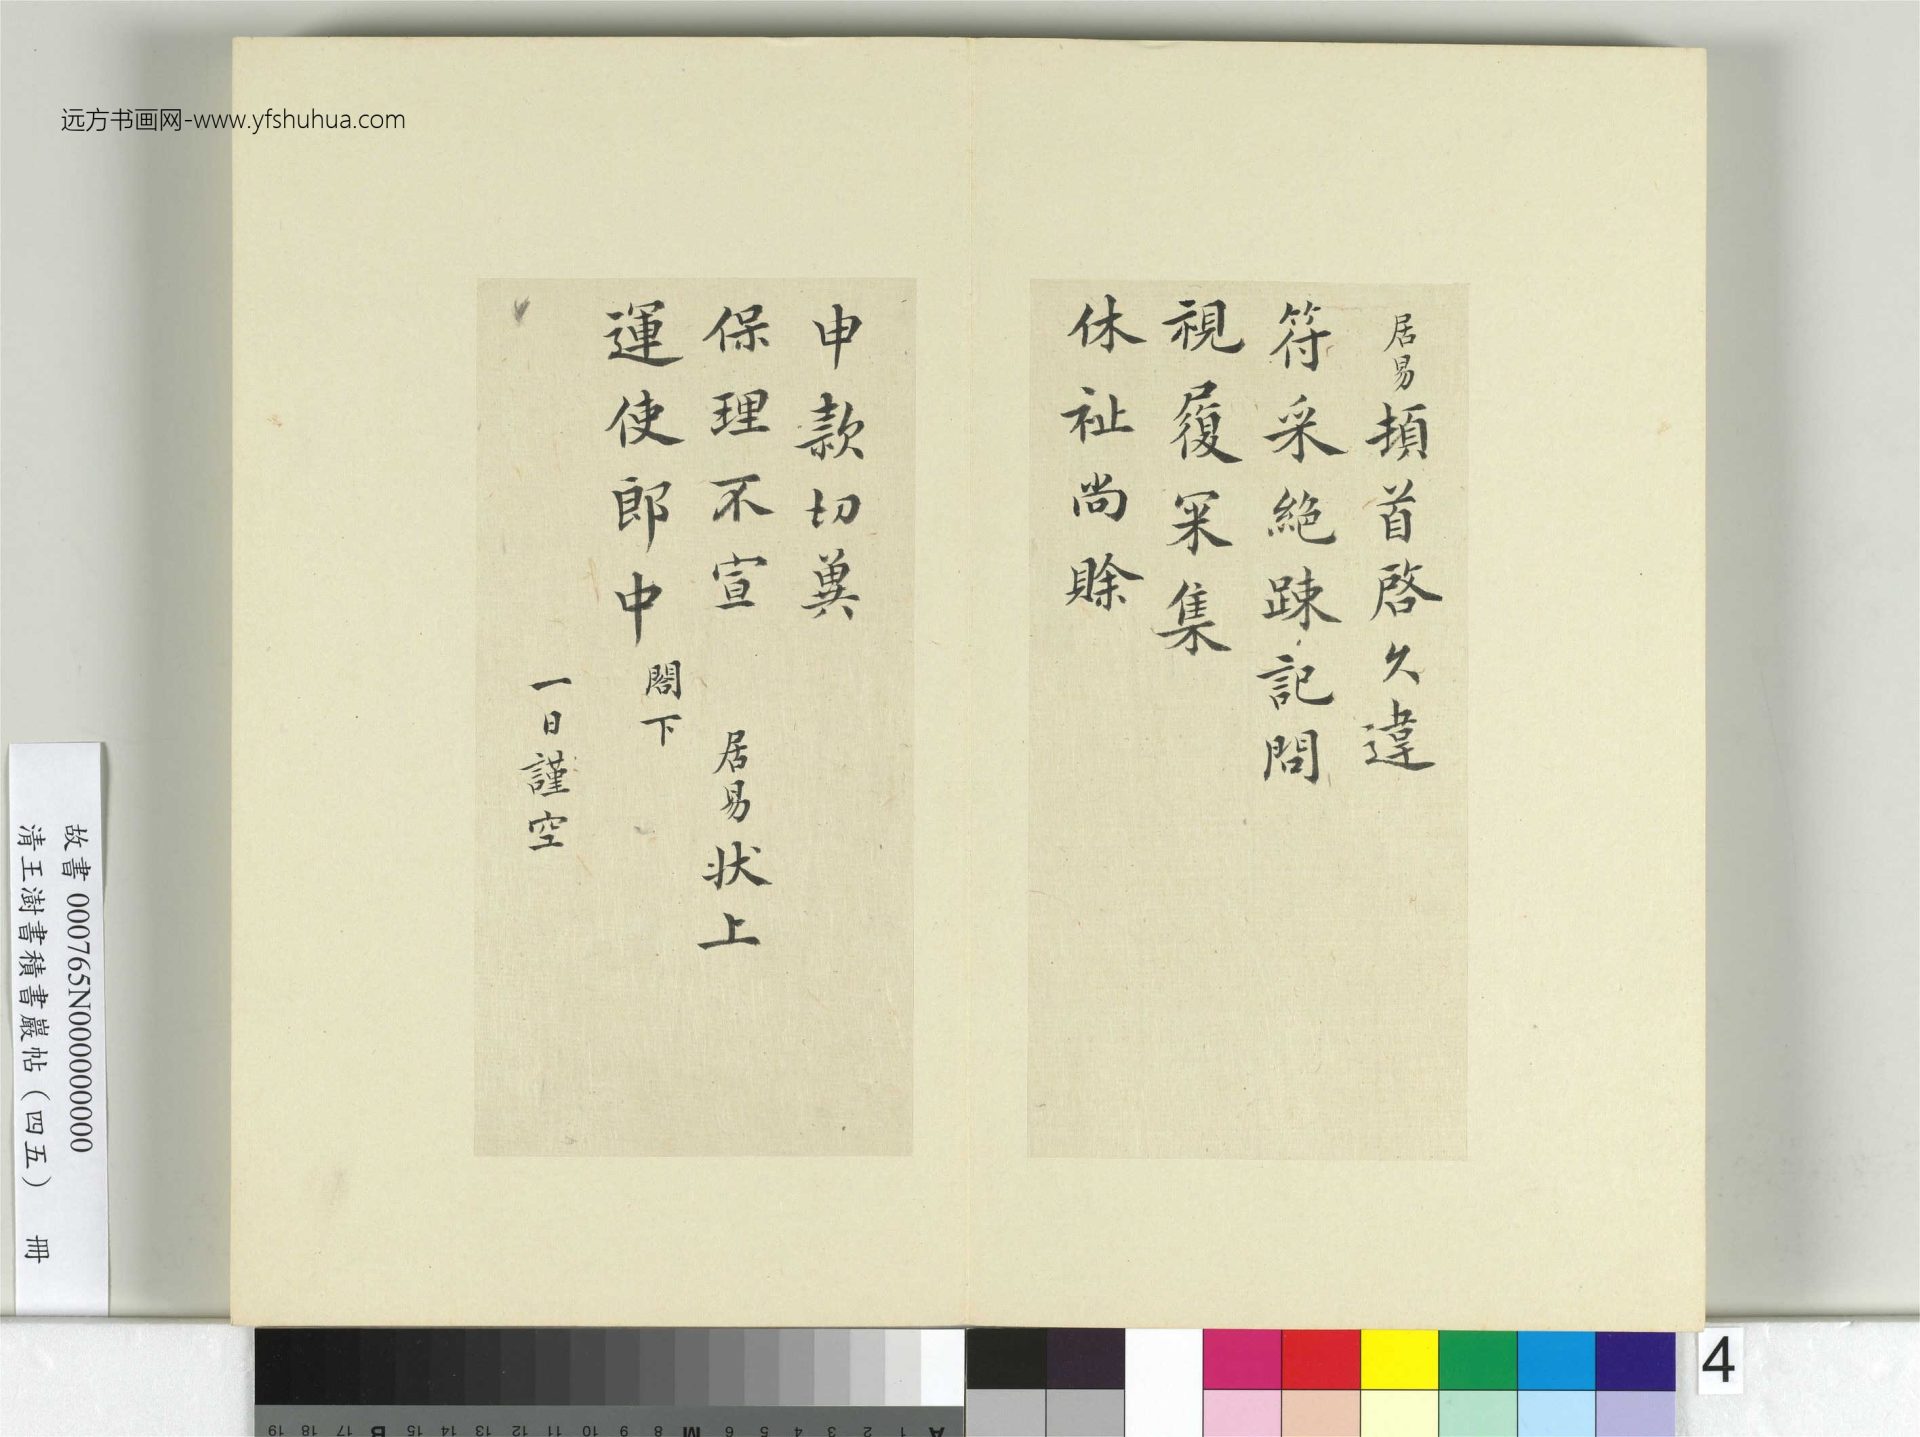 远方书画网-www.yfshuhua.com
居易頓首啓久違
符采絶踈記問
視履冞集
休祉尚賖
申款切兾
保理不宣 居易狀上
運使郎中閤下
一日謹空
故書 000765N000000000
清王澍書積書巖帖（四五） 冊
4
A 1 2 3 4 5 6 M 8 9 10 11 12 13 14 15 B 17 18 19